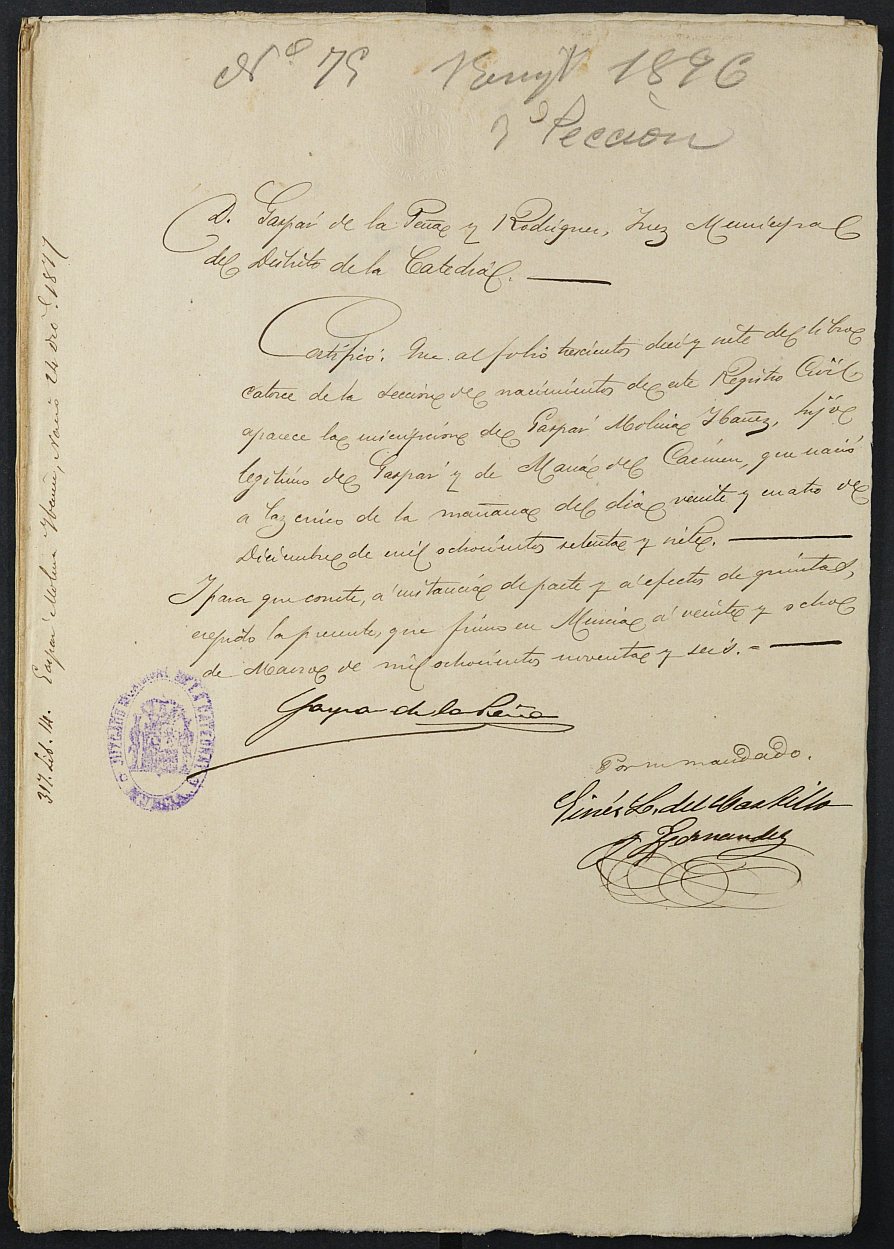 Nº 75 Reempl 1896
3ª Seccion
D. Gaspar de la Peña y Rodriguez, Juez Municipal
del Distrito de la Catedral.
Certifico: Que al folio trescientos diez y siete del libro
catorce de la seccion de nacimientos de este Registro Civil
aparece la inscripcion de Gaspar Molina Ibañez, hijo
legitimo de Gaspar y de Maria del Carmen, que nació
a las cinco de la mañana del dia veinte y cuatro de
Diciembre de mil ochocientos setenta y siete.
Y para que conste, á instancia de parte y á efectos de quintas,
expido la presente, que firmo en Murcia á veinte y ocho
de Marzo de mil ochocientos noventa y seis. =
Gaspar de la Peña
Por su mandado.
Ginés L. del Castillo
y Hernandez
317. Lib. 14. Gaspar Molina Ibañez, Nació 24 Dic. 1877
JUZGADO MUNICIPAL DE LA CATEDRAL MURCIA